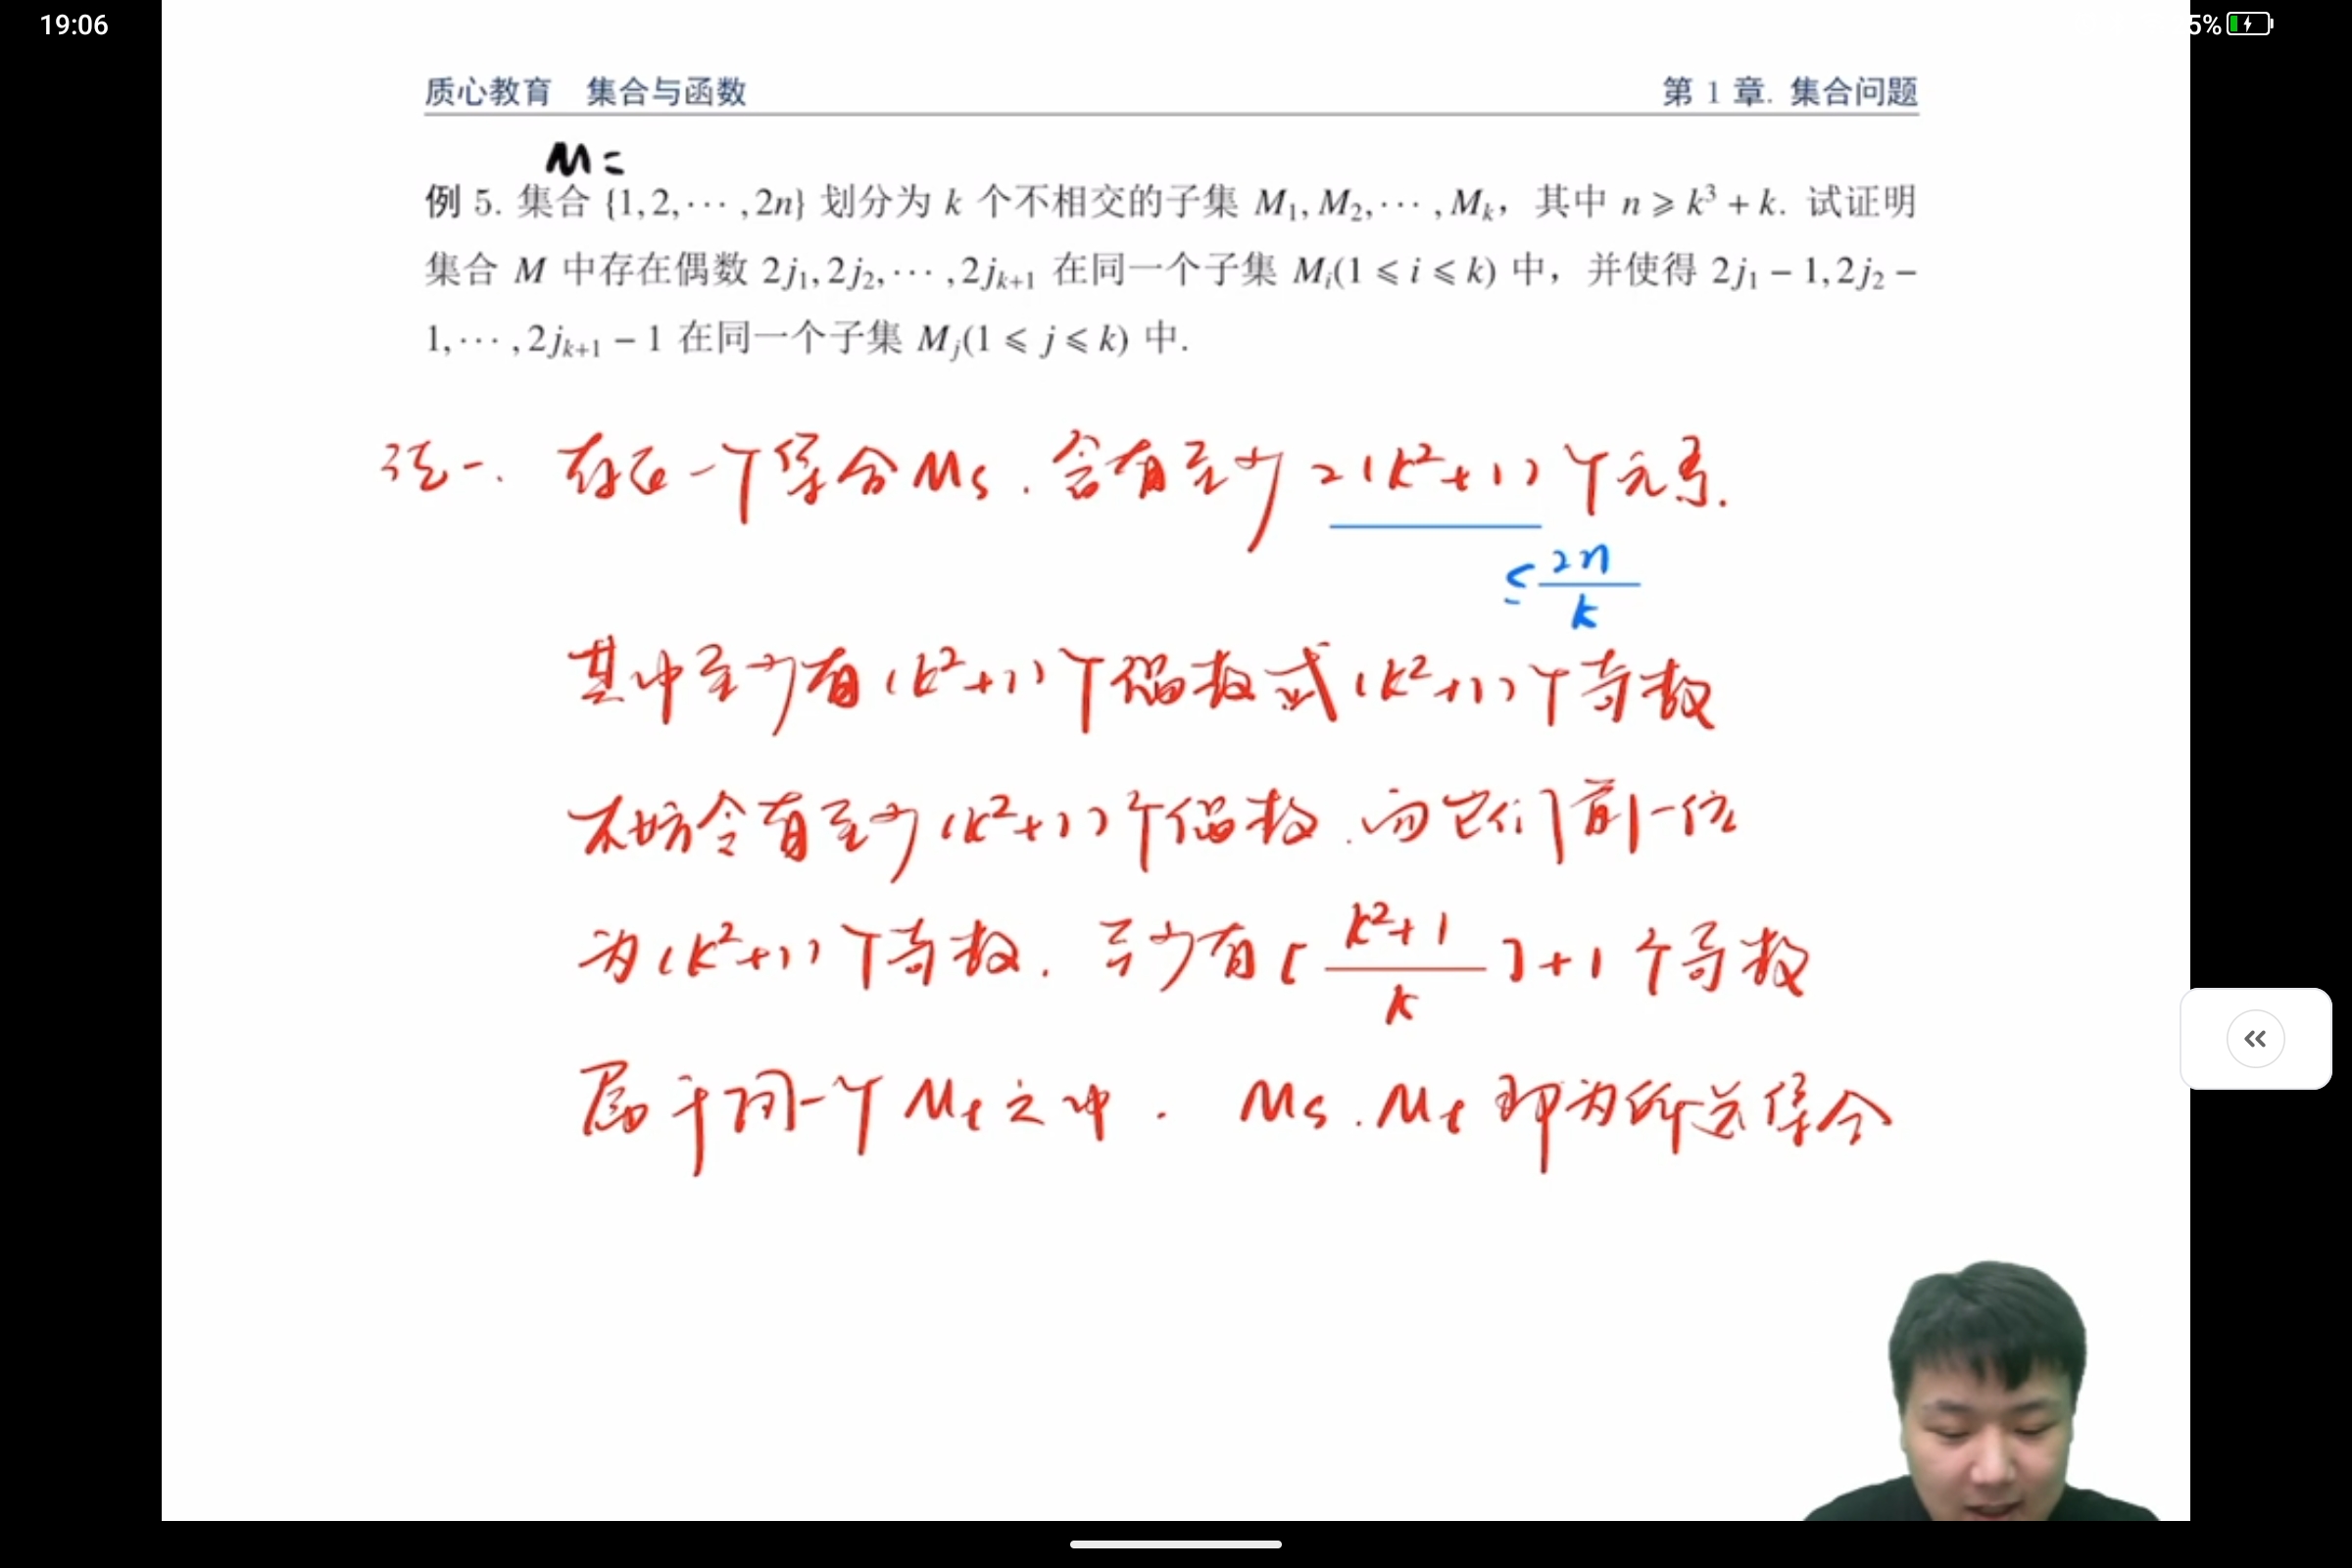 19:06
5%
质心教育 集合与函数
第 1 章. 集合问题
M =
例 5. 集合 {1, 2, ⋯ , 2n} 划分为 k 个不相交的子集 M₁, M₂, ⋯ , Mₖ, 其中 n ⩾ k³ + k. 试证明
集合 M 中存在偶数 2j₁, 2j₂, ⋯ , 2jₖ₊₁ 在同一个子集 Mᵢ(1 ⩽ i ⩽ k) 中, 并使得 2j₁ − 1, 2j₂ −
1, ⋯ , 2jₖ₊₁ − 1 在同一个子集 Mⱼ(1 ⩽ j ⩽ k) 中.
法一. 存在一个集合 Ms. 含有至少 2(k²+1) 个元素.
≤ 2n/k
其中至少有 (k²+1) 个偶数或 (k²+1) 个奇数
不妨含有至少 (k²+1) 个偶数. 而它们前一位
为 (k²+1) 个奇数. 至少有 [(k²+1)/k]+1 个奇数
属于同一个 Mt 之中. Ms. Mt 即为所选集合